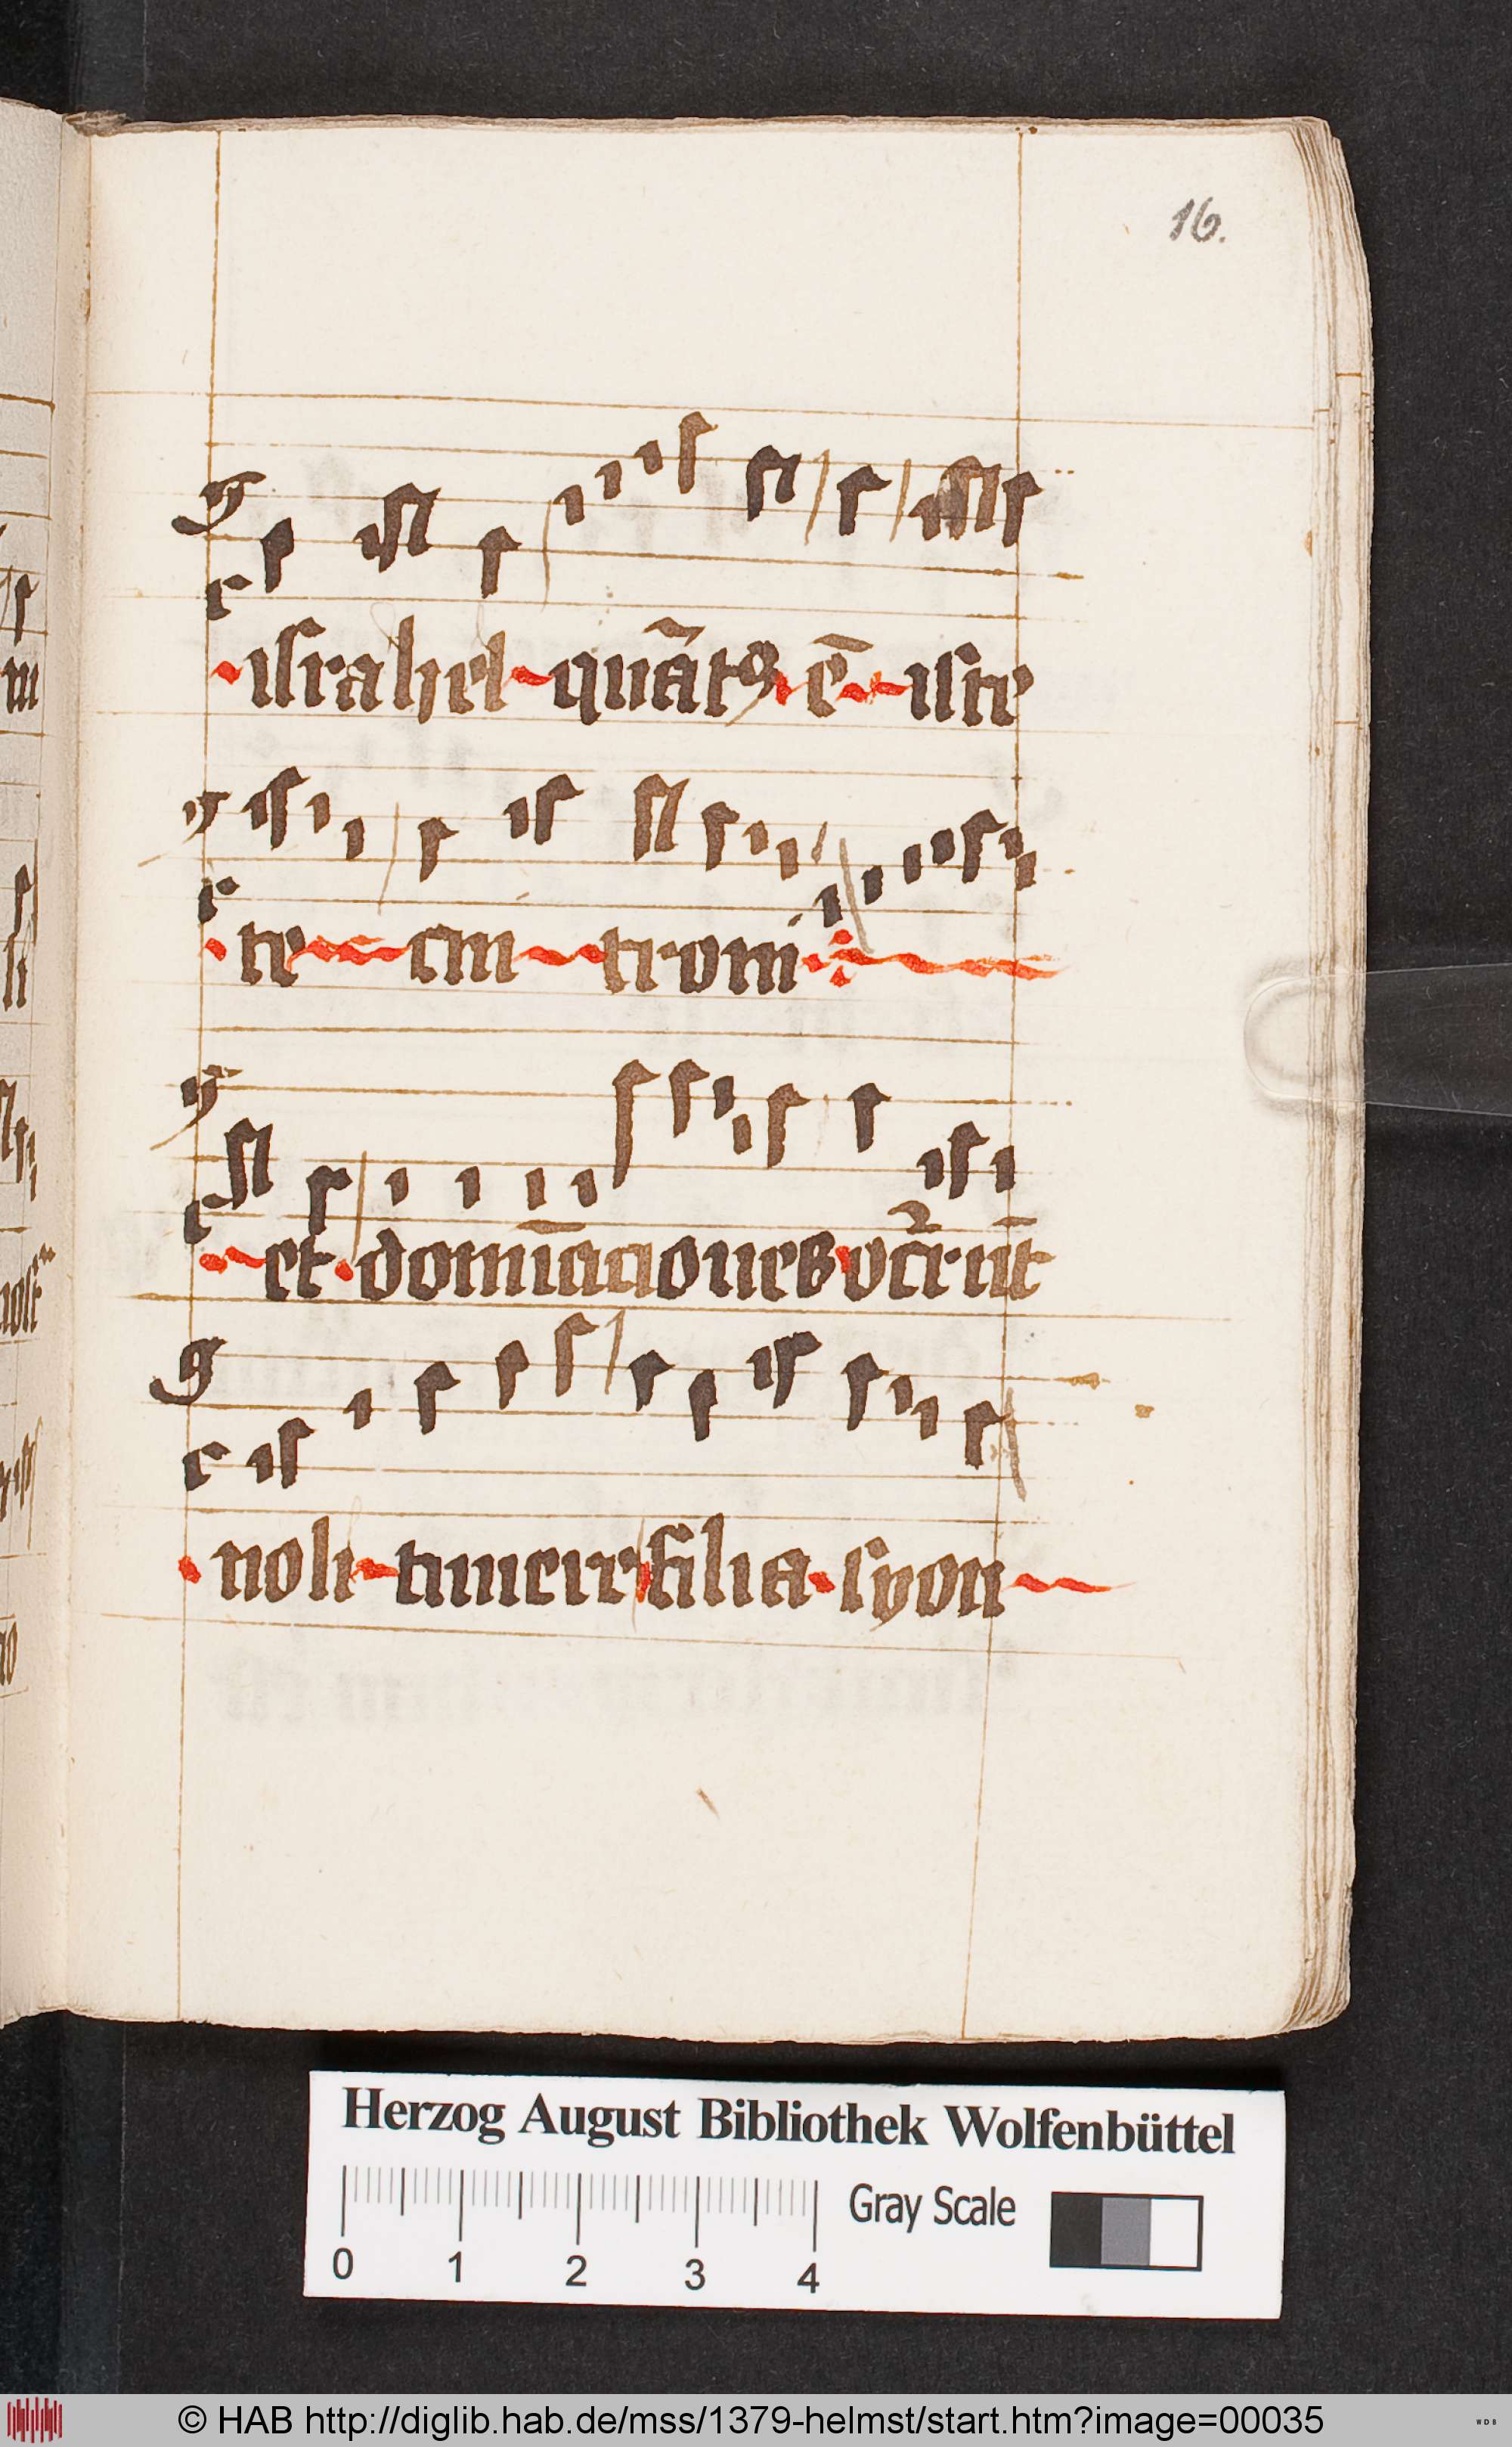 16.
israhel quãtꝯ ē iste
te cui troni
et domīaciones occˀrūt
noli timere filia syon
Herzog August Bibliothek Wolfenbüttel
Gray Scale
0 1 2 3 4
© HAB http://diglib.hab.de/mss/1379-helmst/start.htm?image=00035